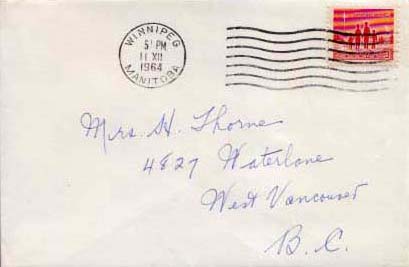 WINNIPEG
5 PM
11 XII
1964
MANITOBA
Mrs. H. Thorne
4827 Waterlane
West Vancouver
B. C.